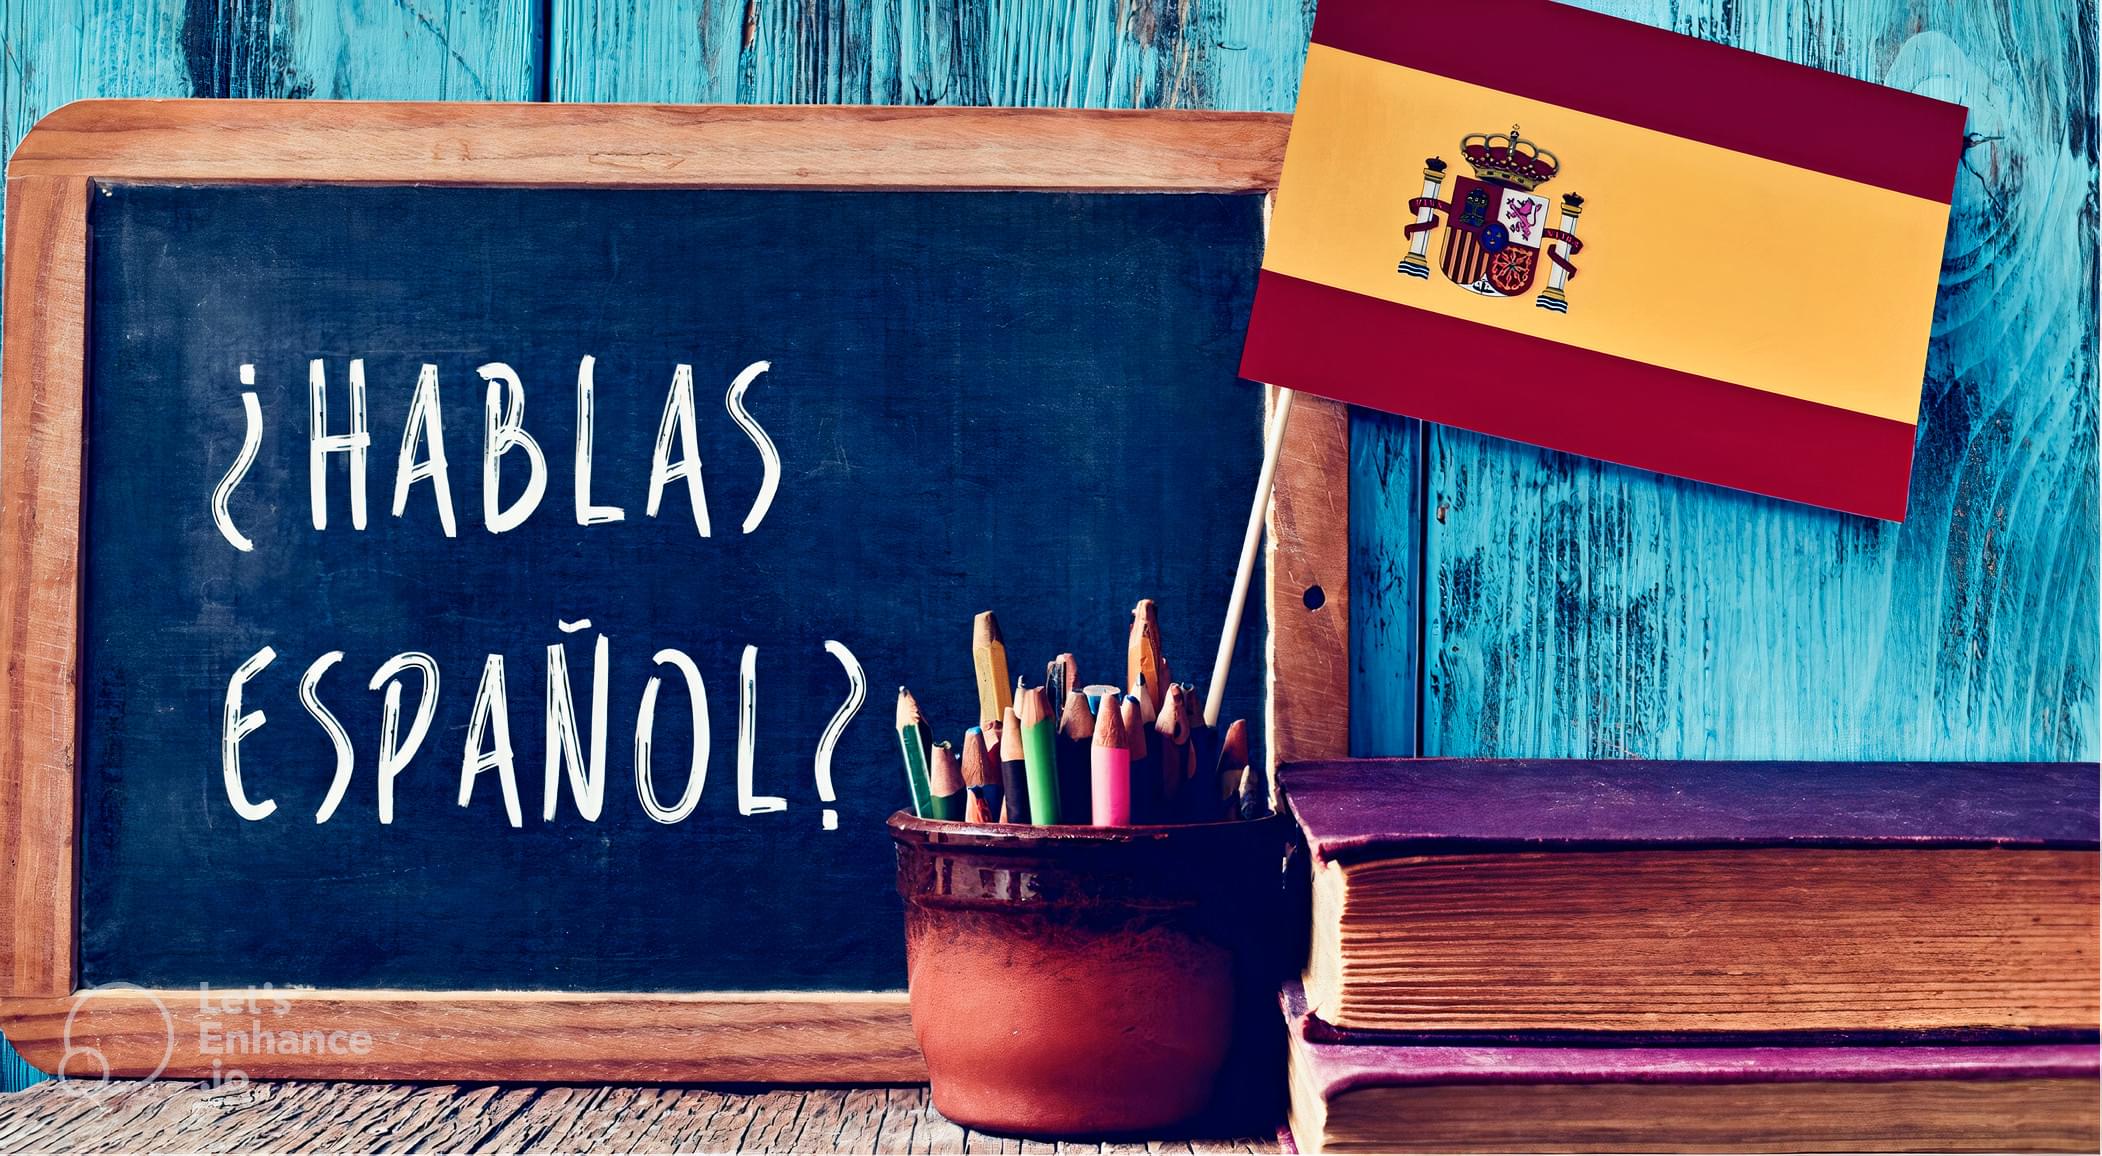 ¿HABLAS
ESPAÑOL?
Let's
Enhance
.io